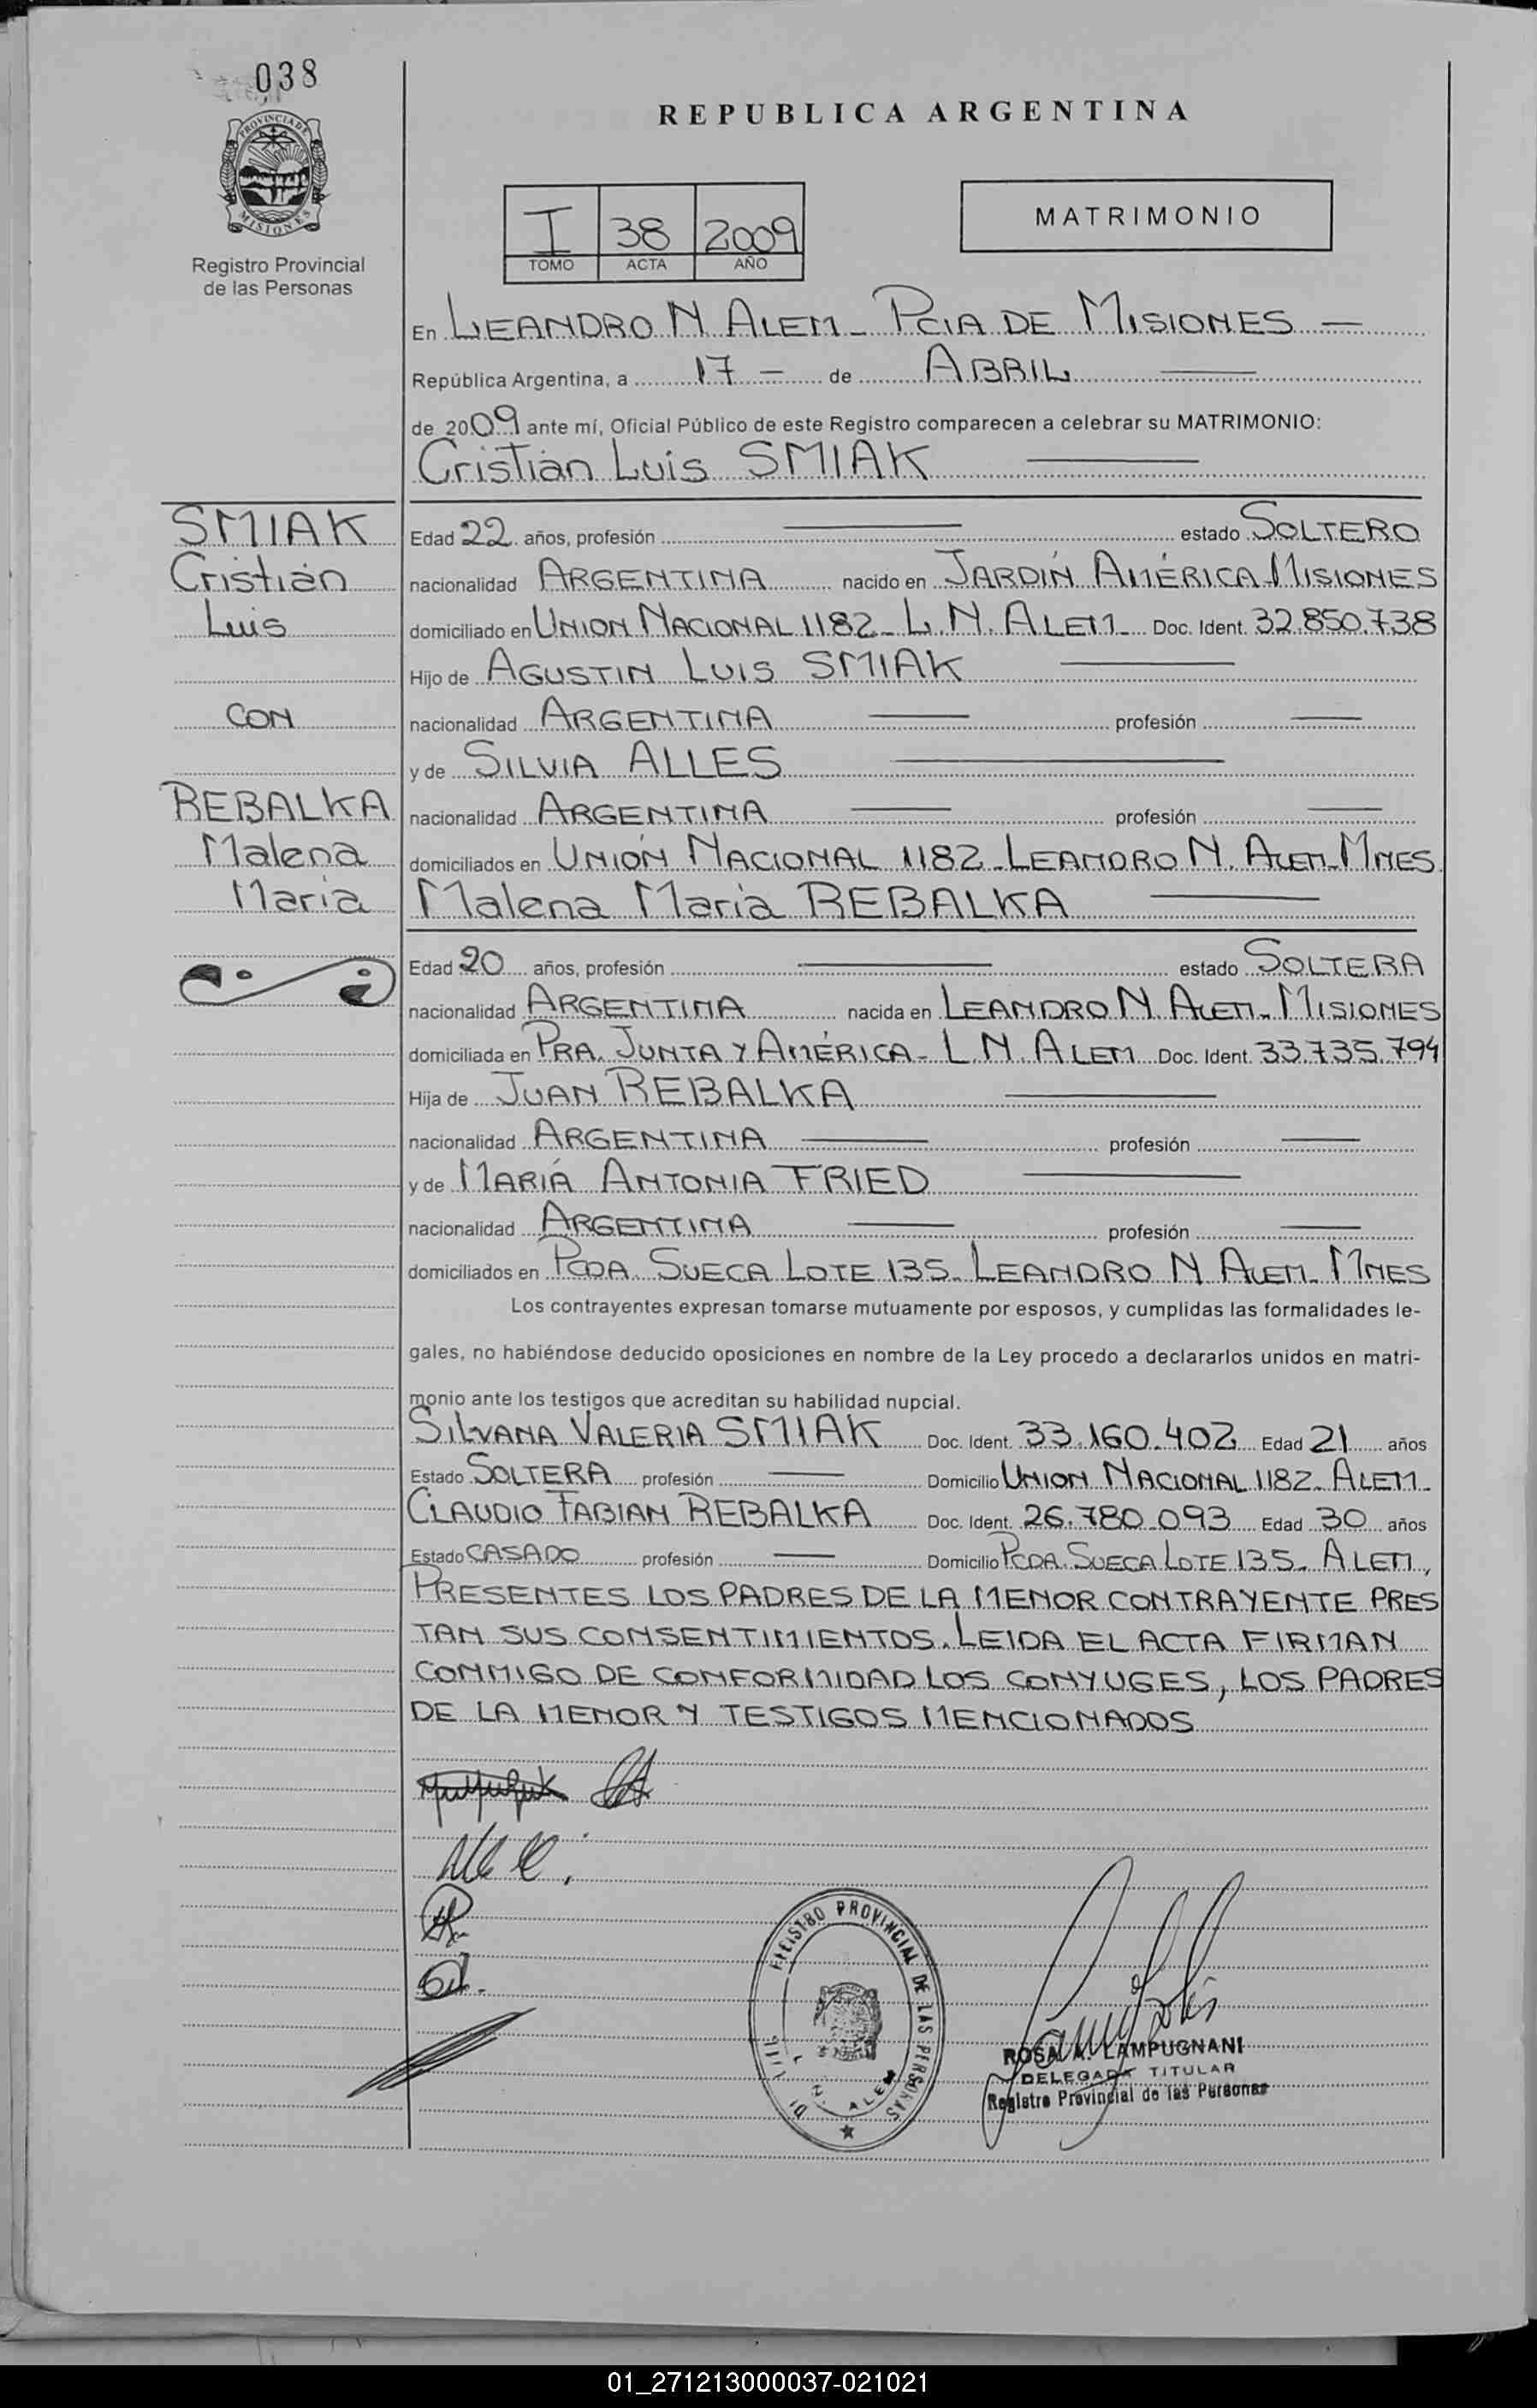 038
PROVINCIA DE
MISIONES
Registro Provincial
de las Personas
REPUBLICA ARGENTINA
I 38 2009
TOMO ACTA AÑO
MATRIMONIO
En LEANDRO N ALEM - PCIA DE MISIONES —
República Argentina, a 17 — de ABRIL —
de 2009 ante mí, Oficial Público de este Registro comparecen a celebrar su MATRIMONIO:
Cristián Luis SMIAK —
SMIAK
Cristián
Luis
CON
REBALKA
Malena
María
Edad 22 años, profesión — estado SOLTERO
nacionalidad ARGENTINA nacido en JARDÍN AMÉRICA-MISIONES
domiciliado en UNION NACIONAL 1182 - L. N. ALEM - Doc. Ident. 32.850.738
Hijo de AGUSTIN LUIS SMIAK —
nacionalidad ARGENTINA — profesión —
y de SILVIA ALLES —
nacionalidad ARGENTINA — profesión —
domiciliados en UNIÓN NACIONAL 1182 - LEANDRO N. ALEM - MNES
Malena María REBALKA —
Edad 20 años, profesión — estado SOLTERA
nacionalidad ARGENTINA nacida en LEANDRO N. ALEM - MISIONES
domiciliada en PRA. JUNTA Y AMÉRICA - L.N. ALEM Doc. Ident. 33.735.794
Hija de JUAN REBALKA —
nacionalidad ARGENTINA — profesión —
y de MARÍA ANTONIA FRIED —
nacionalidad ARGENTINA — profesión —
domiciliados en PCDA. SUECA LOTE 135 - LEANDRO N ALEM - MNES
Los contrayentes expresan tomarse mutuamente por esposos, y cumplidas las formalidades le-
gales, no habiéndose deducido oposiciones en nombre de la Ley procedo a declararlos unidos en matri-
monio ante los testigos que acreditan su habilidad nupcial.
SILVANA VALERIA SMIAK Doc. Ident. 33.160.402 Edad 21 años
Estado SOLTERA profesión — Domicilio UNION NACIONAL 1182 - ALEM -
CLAUDIO FABIAN REBALKA Doc. Ident. 26.780.093 Edad 30 años
Estado CASADO profesión — Domicilio PCDA. SUECA LOTE 135 - ALEM,
PRESENTES LOS PADRES DE LA MENOR CONTRAYENTE PRES
TAN SUS CONSENTIMIENTOS. LEIDA EL ACTA FIRMAN
CONMIGO DE CONFORMIDAD LOS CONYUGES, LOS PADRES
DE LA MENOR Y TESTIGOS MENCIONADOS
REGISTRO PROVINCIAL DE LAS PERSONAS
L. N. ALEM
ROSA A. LAMPUGNANI
DELEGADA TITULAR
Registro Provincial de las Personas
01_271213000037-021021